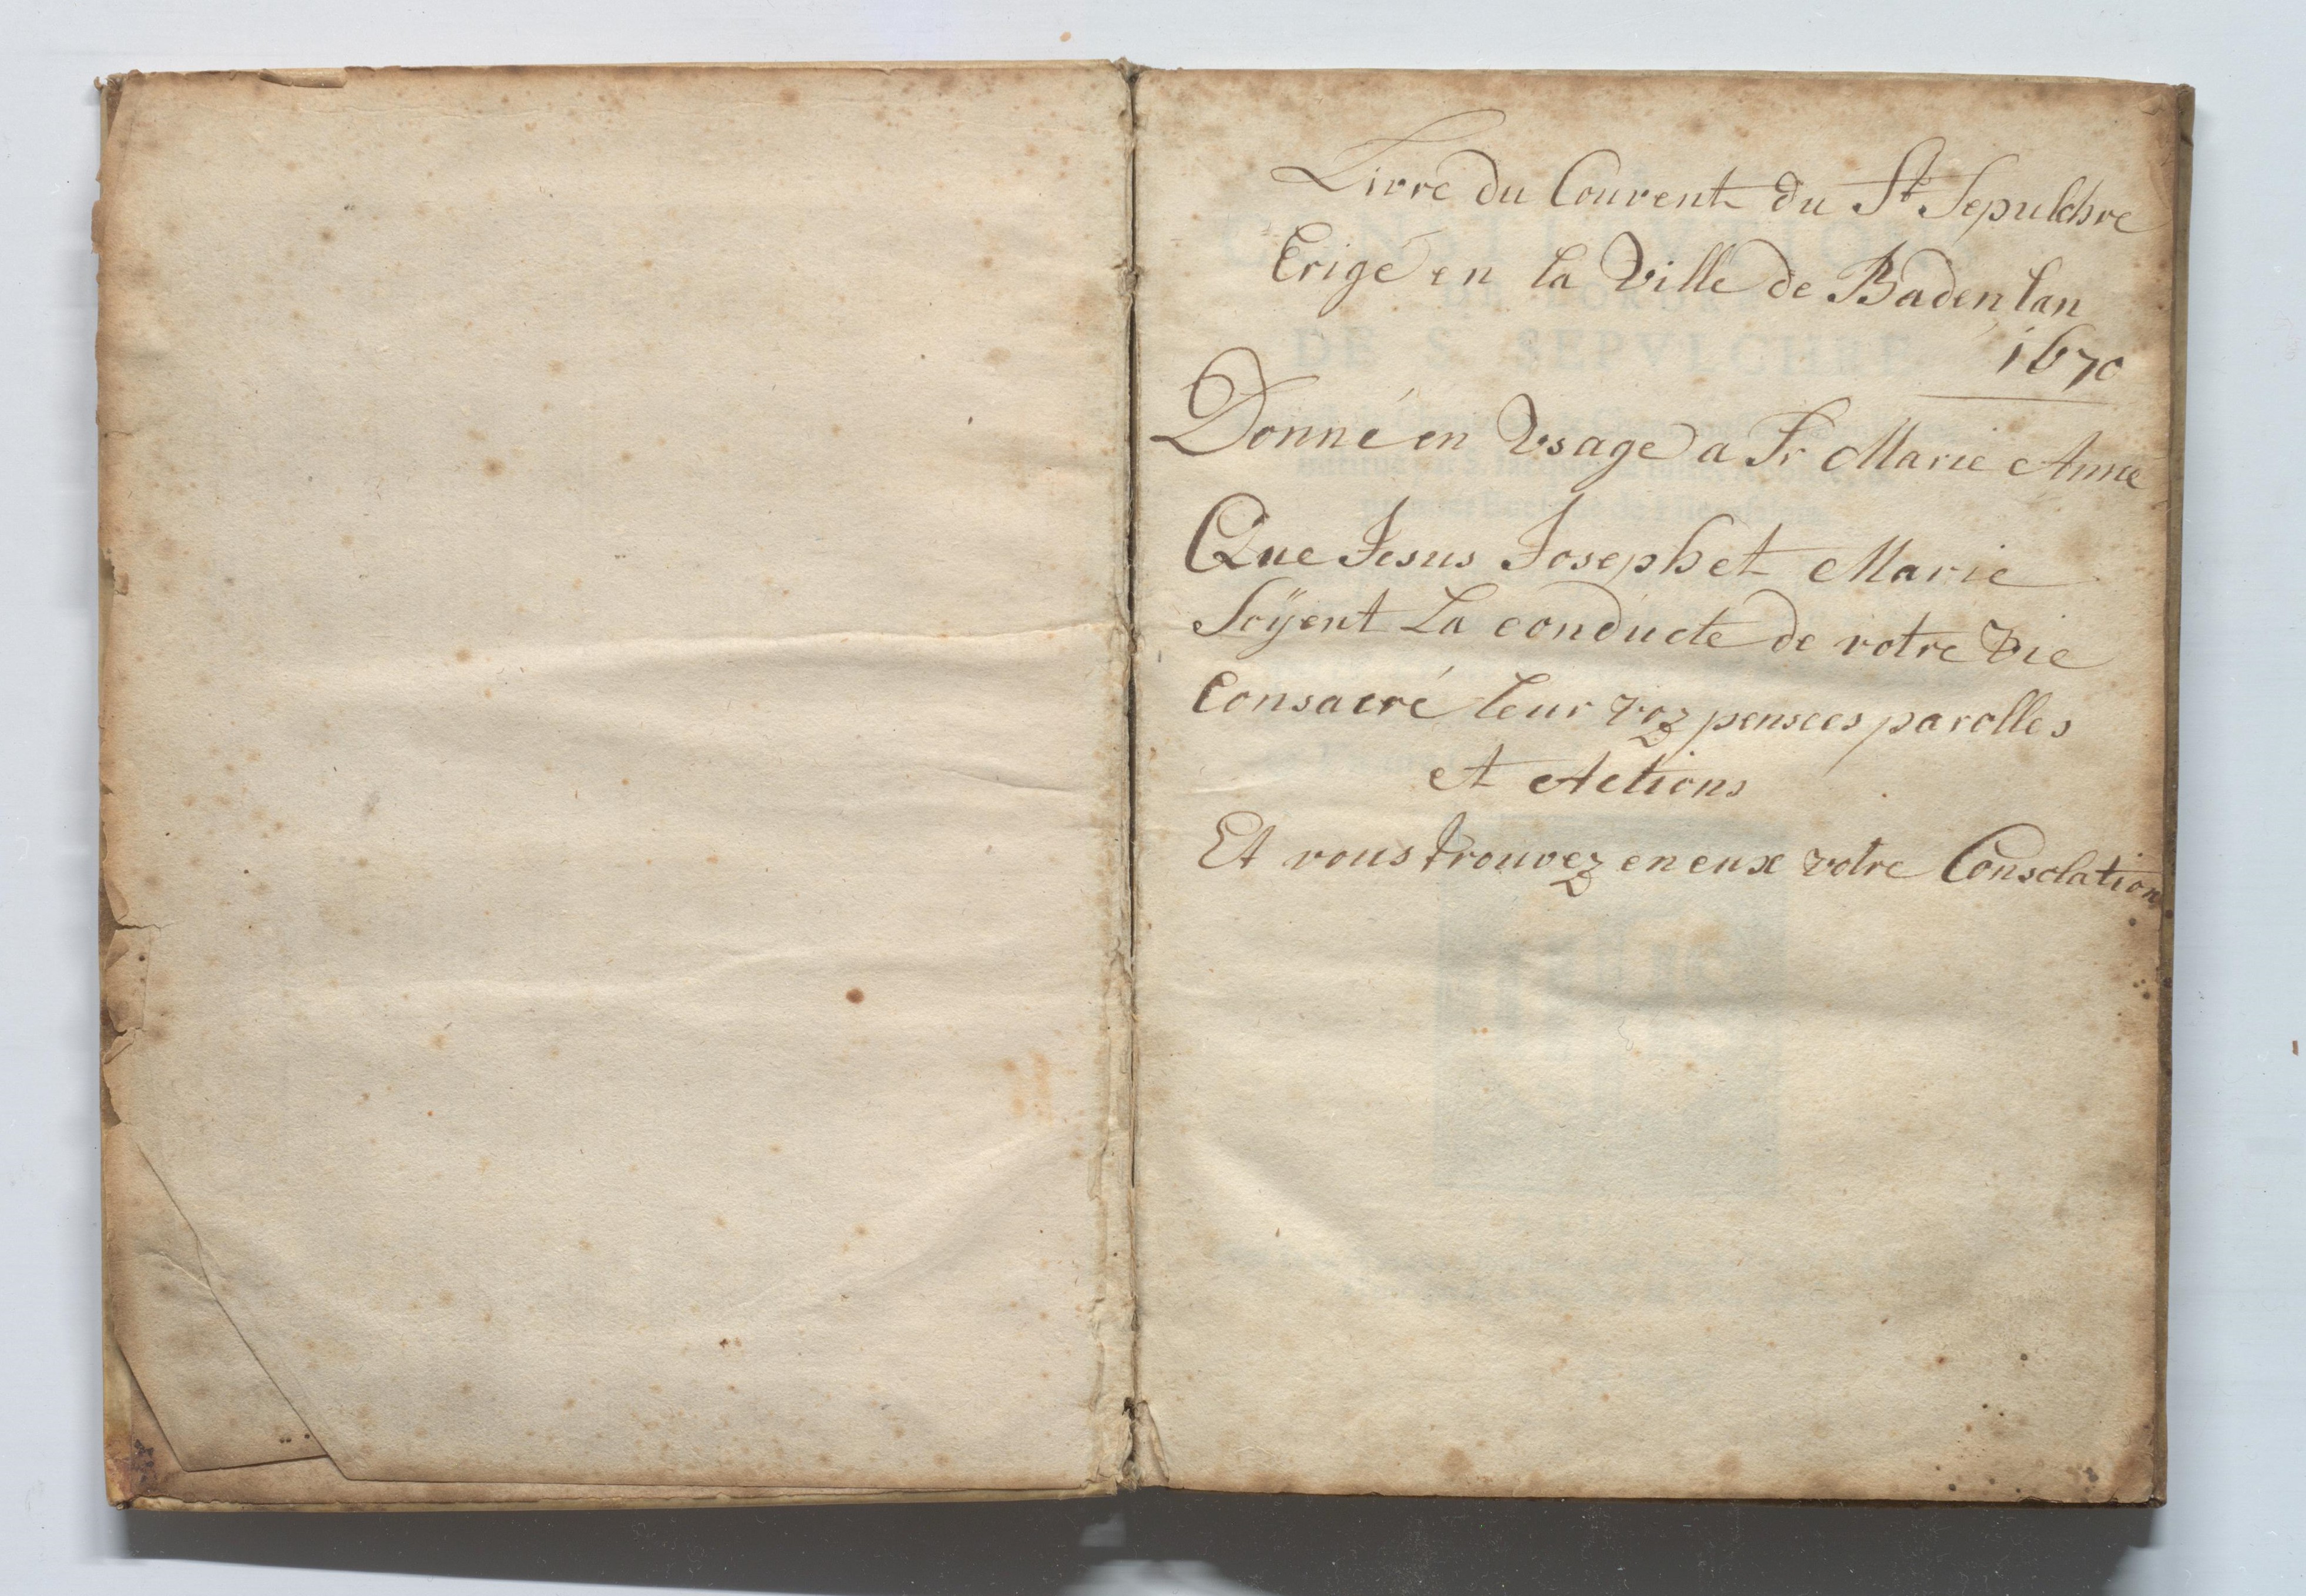 Livre du Couvent du St Sepulchre
Erigé en la Ville de Baden lan
1670
Donné en Vsage a Sr Marie Anne
Que Jesus Joseph et Marie
Soÿent La conducte de votre vie
Consacré leur voz pensees parolles
et Actions
Et vous trouvez en eux votre Consolation
DE S. SEPVLCHRE